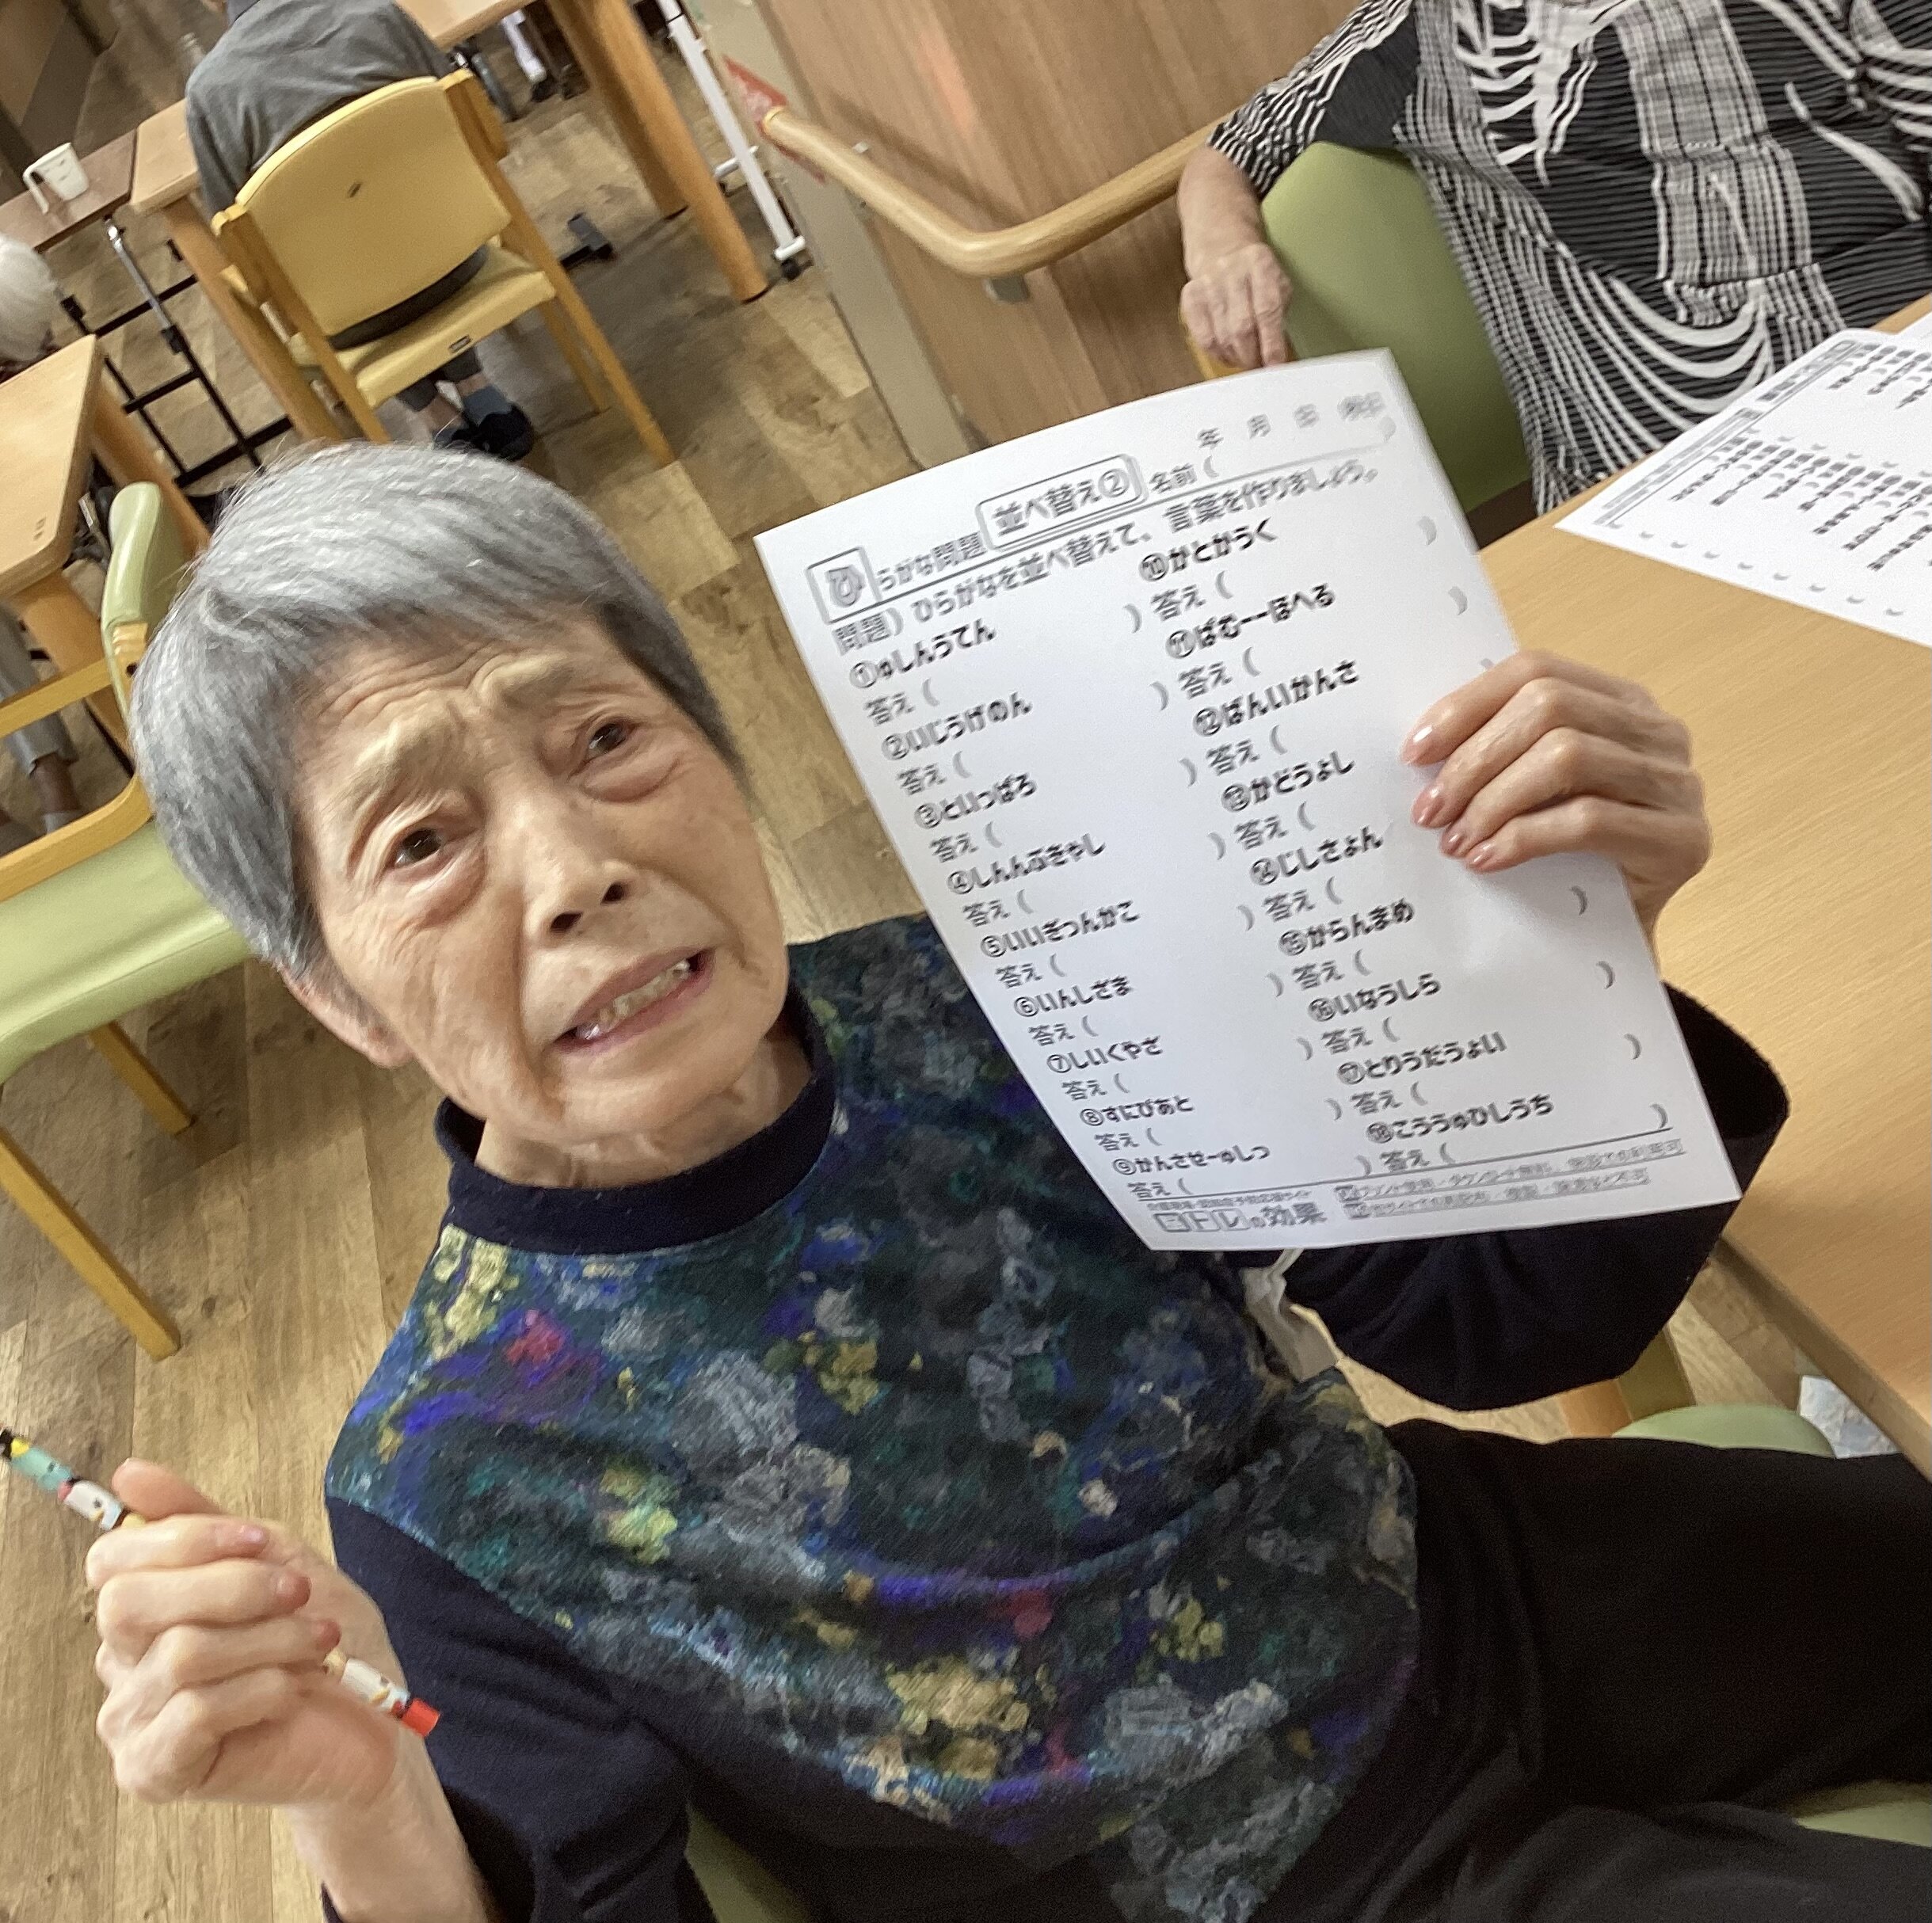 年 月 日
ひらがな問題 並べ替え② 名前（ ）
問題）ひらがなを並べ替えて、言葉を作りましょう。
①ゅしんうてん
答え（ ）
②いじうげのん
答え（ ）
③といっぱろ
答え（ ）
④しんんぶきゃし
答え（ ）
⑤いいぎつんかこ
答え（ ）
⑥いんしざま
答え（ ）
⑦しいくやざ
答え（ ）
⑧すにぴあと
答え（ ）
⑨かんさせーゅしっ
答え（ ）
⑩かとかうく
答え（ ）
⑪ぱむーーほへる
答え（ ）
⑫ばんいかんさ
答え（ ）
⑬かどうょし
答え（ ）
⑭じしさょん
答え（ ）
⑮からんまめ
答え（ ）
⑯いなうしら
答え（ ）
⑰とりうだうょい
答え（ ）
⑱こううゅひしうち
答え（ ）
コトレの効果